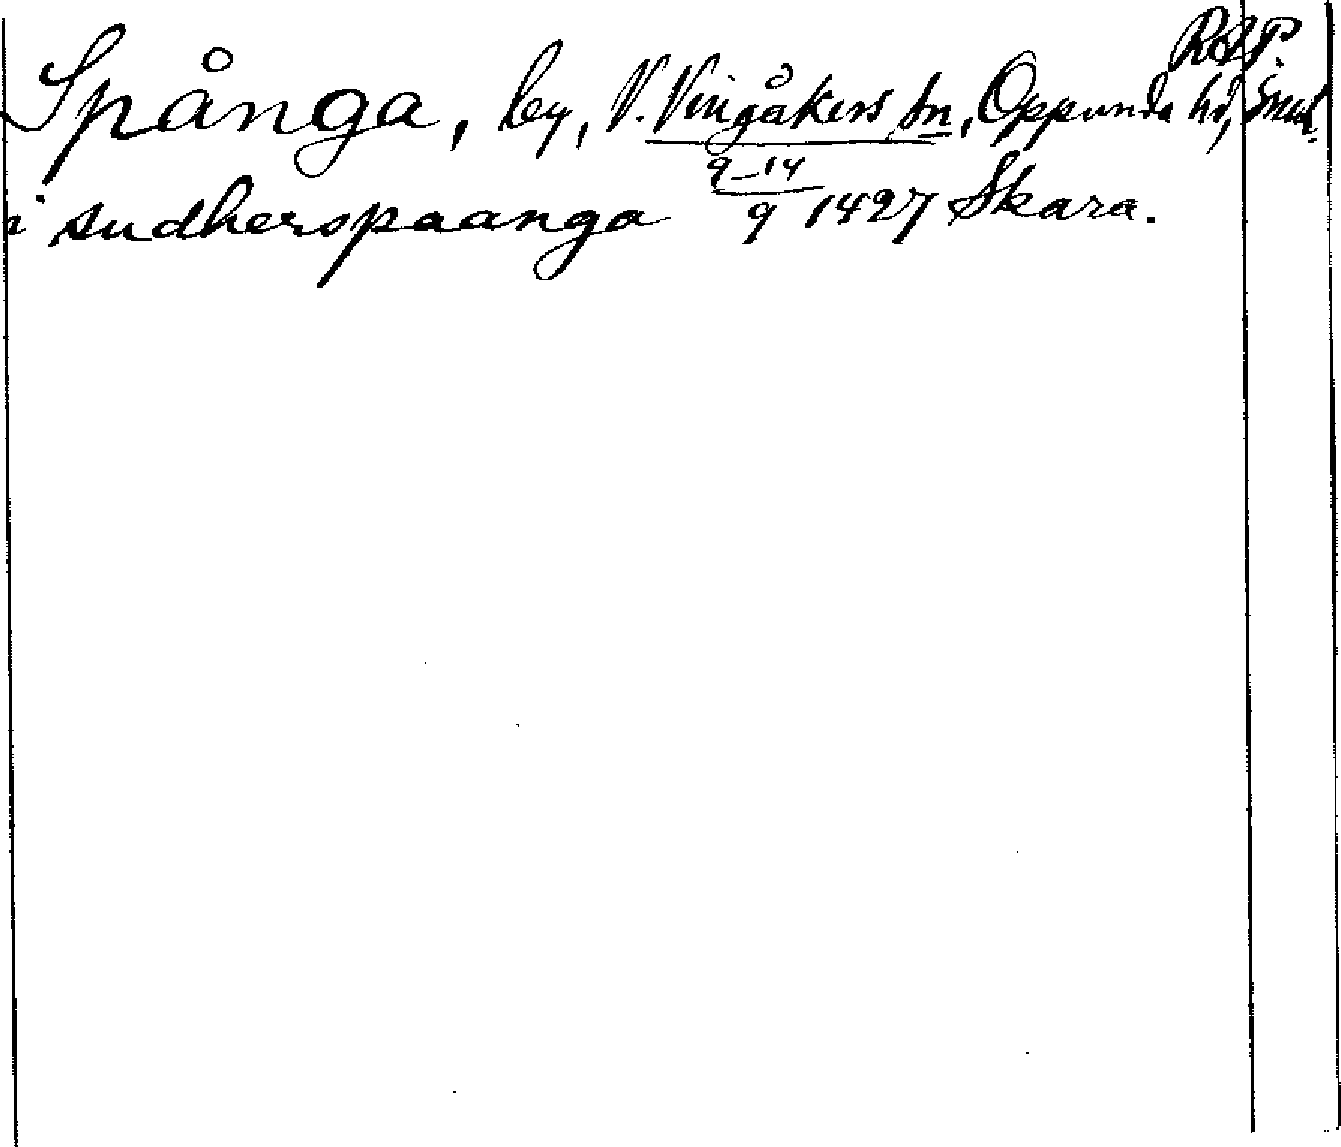 RAP.
Spånga, by, V. Vingåkers sn, Oppunda hd, Smd.
i sudherspaanga 9–14/9 1427 Skara.